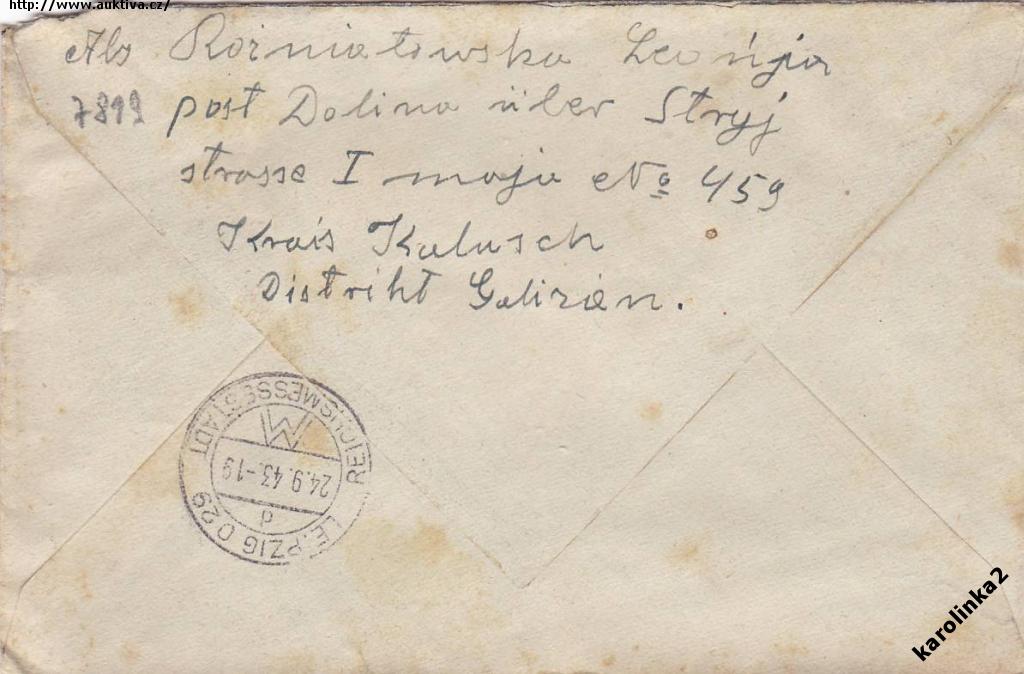 http://www.auktiva.cz/
Abs Rożniatowska Leonja
7899 post Dolina über Stryj
strasse I maja No 459
Krais Kalusch
Distrikt Galizien.
REICHSMESSESTADT
24.9.43.-19
d
LEIPZIG O29
karolinka2